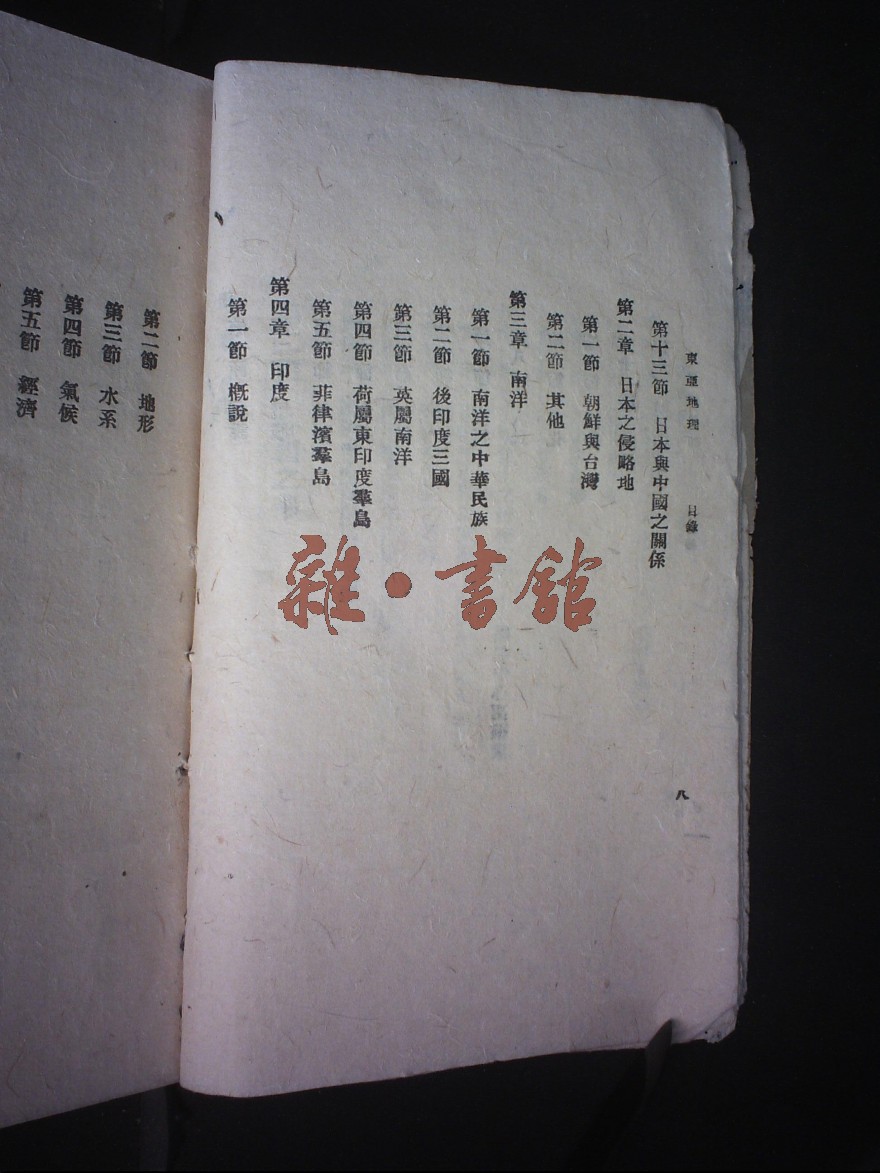 東亞地理 目錄 八
第十三節 日本與中國之關係
第二章 日本之侵略地
第一節 朝鮮與台灣
第二節 其他
第三章 南洋
第一節 南洋之中華民族
第二節 後印度三國
第三節 英屬南洋
第四節 荷屬東印度羣島
第五節 菲律濱羣島
第四章 印度
第一節 概說
第二節 地形
第三節 水系
第四節 氣候
第五節 經濟
雜·書館